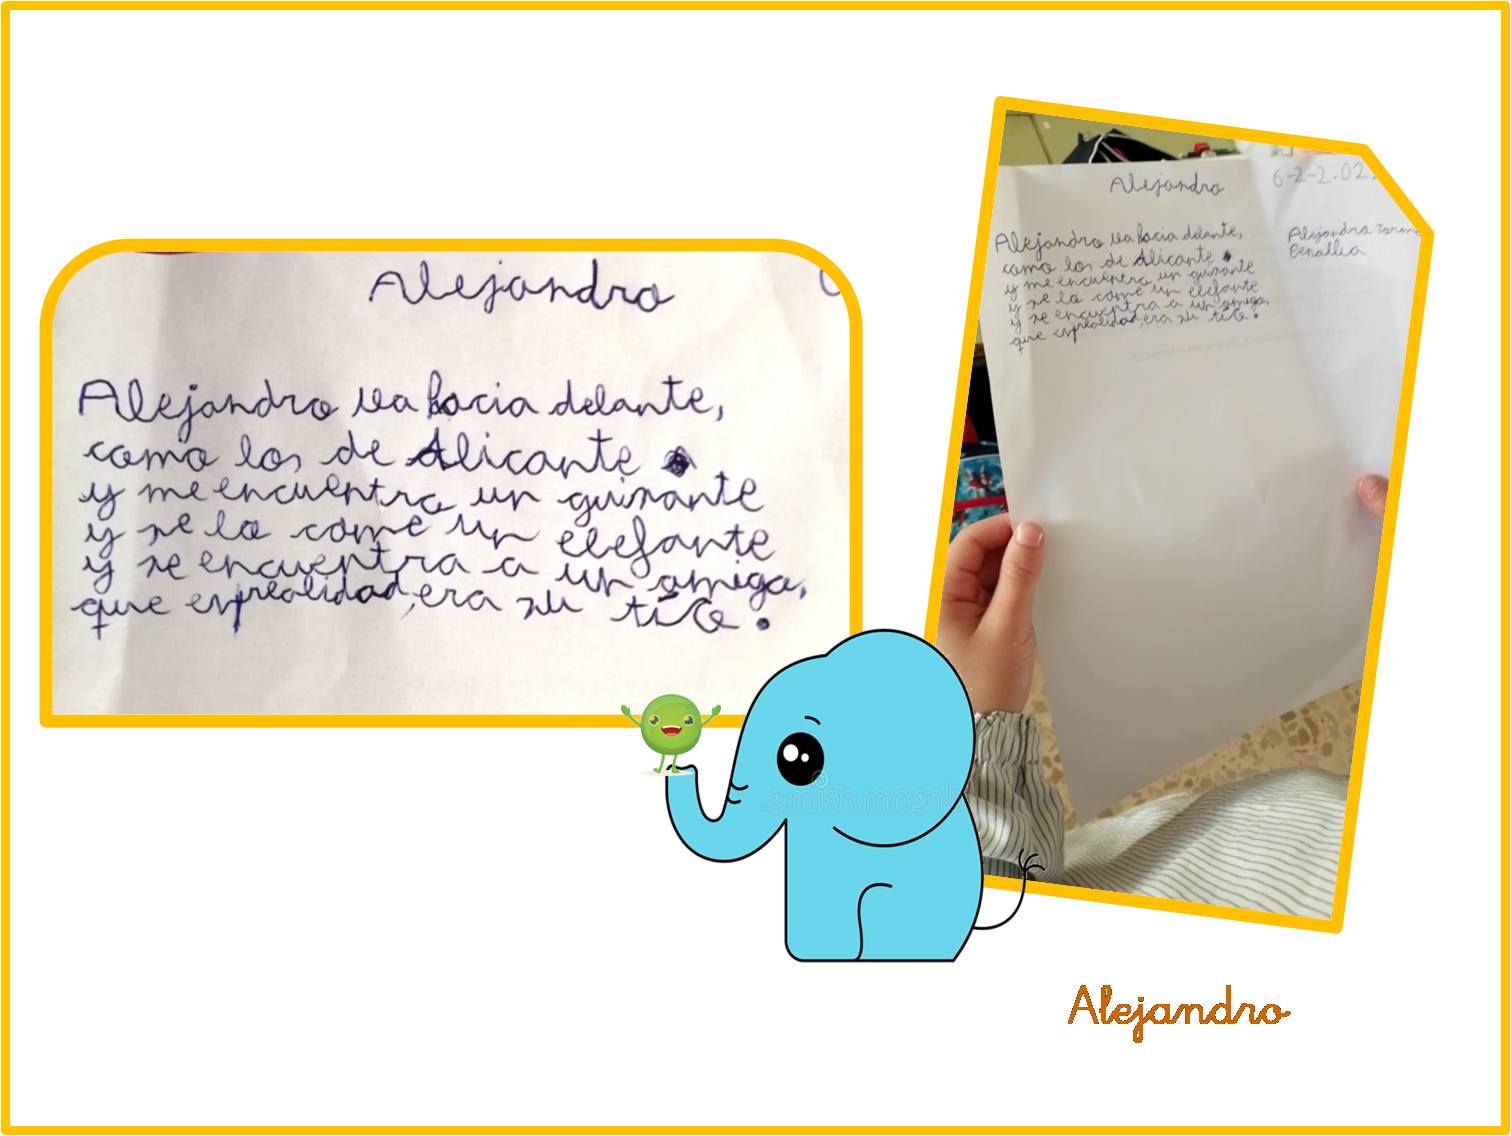 Alejandro
Alejandro va hacia delante,
como los de Alicante
y me encuentro un guisante
y se lo come un elefante
y se encuentra a un amigo,
que en realidad, era su tío.
Alejandro
6-2-2.02
Alejandro va hacia delante,
como los de Alicante
y me encuentro un guisante
y se lo come un elefante
y se encuentra a un amigo,
que en realidad, era su tío.
Alejandro
dreamstime.
Alejandro